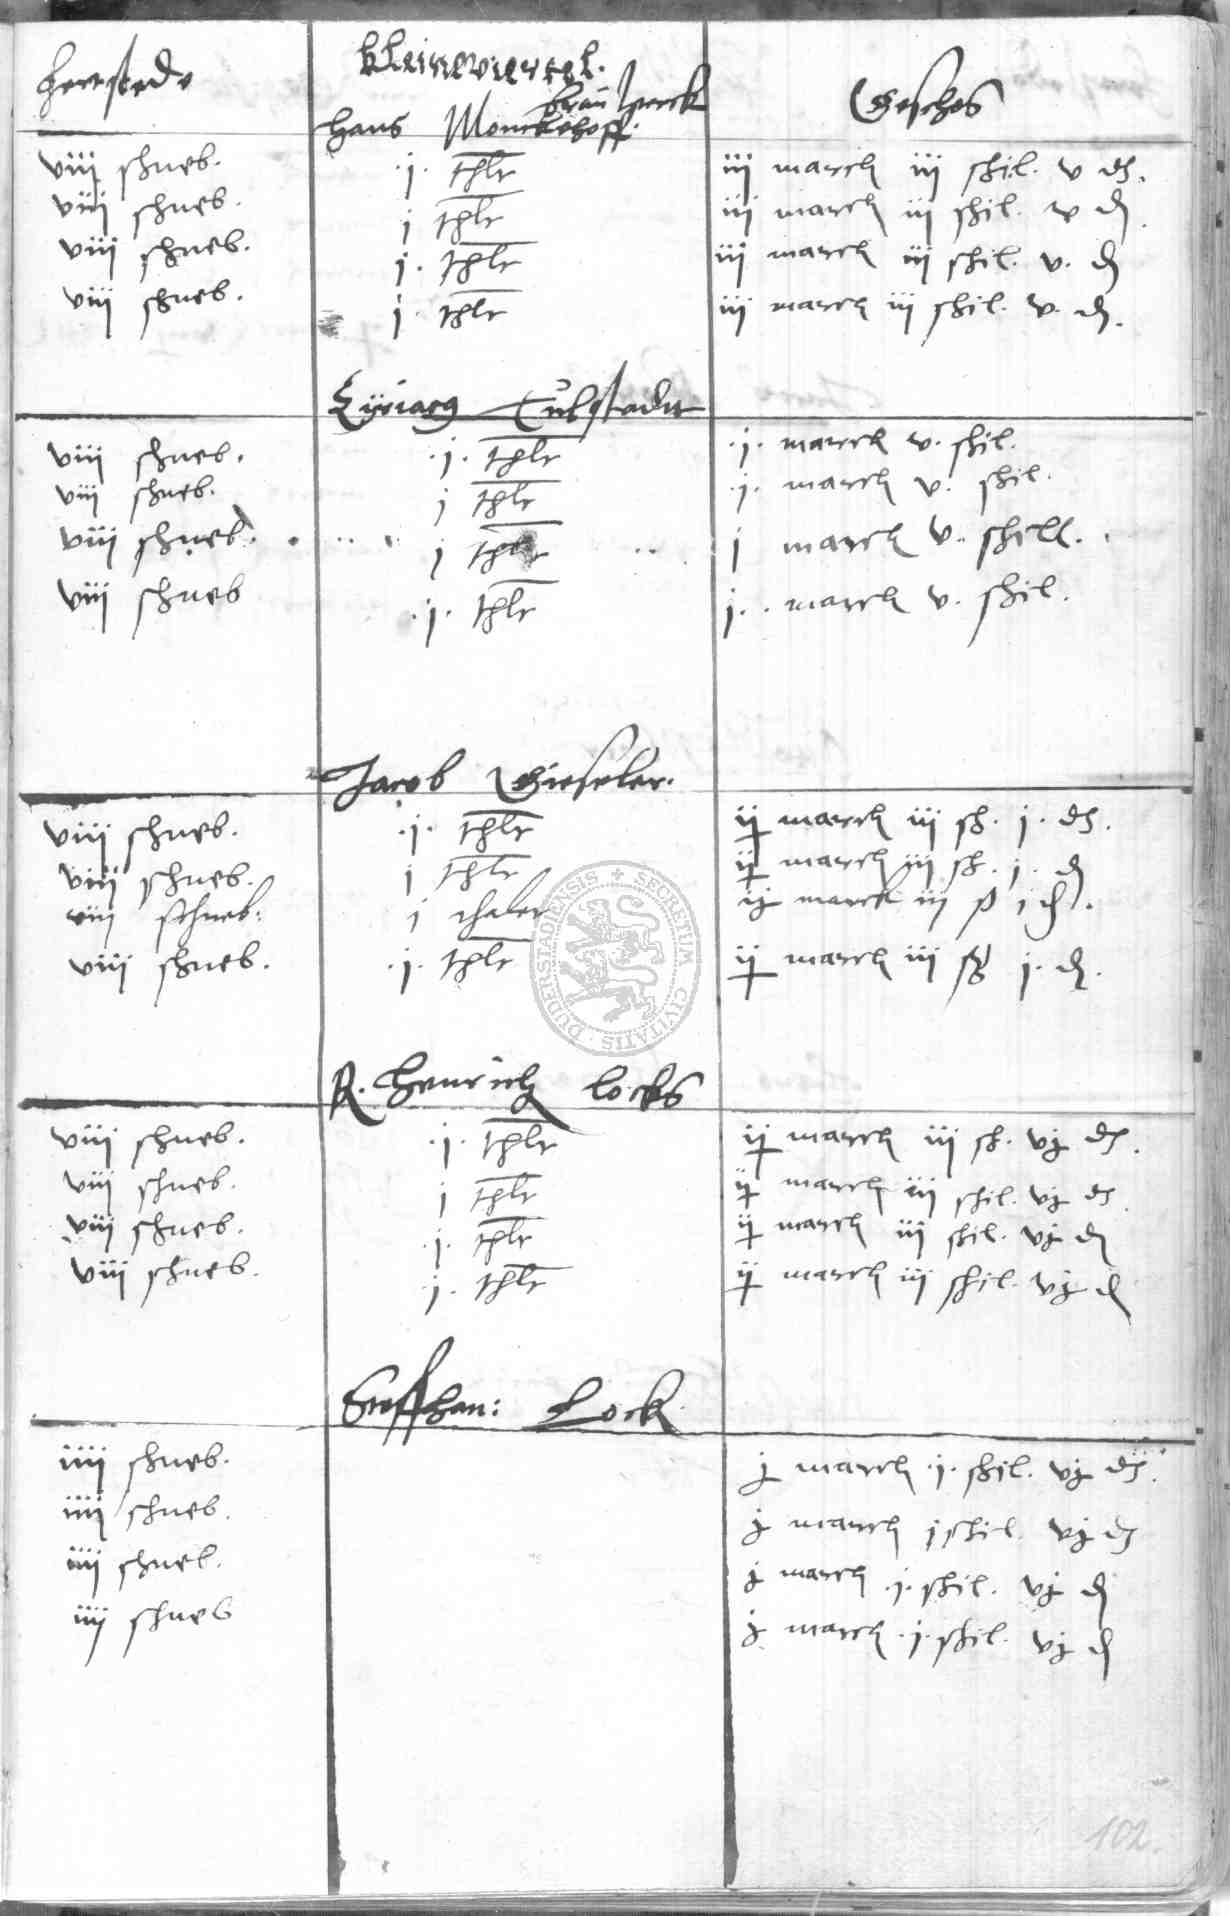 herdstede kleineviertel. Geschos
brau werck
Hans Monckehoff.
viii schneb. .j. thlr iii marck iii schil. v ds.
viii schneb. j thlr iii marck iii schil. v d
viii schneb. j. thlr iii marck iii schil. v. d
viii schneb. j. thlr iii marck iii schil. v. d.
Ciriacus Tulstadt
viii schneb. .j. thlr .j. marck v. schil.
viii schneb. j thlr .j. marck v. schil.
viii schneb. j thlr j marck v. schill.
viii schneb .j. thlr j. marck v. schil.
Jacob Gieseler.
viii schneb. .j. thlr ij marck iii sch. j. ds.
viii schneb. j thlr ij marck iii sch. j. d
viii schneb: j thaler ij marck iij ß j d.
viii schneb. .j. thlr ij marck iii sch j. d.
R. Henrich Locks
viii schneb. .j. thlr ij marck iii sch. vj ds.
viii schneb. j thlr ij marck iii schil. vj ds
viii schneb. .j. thlr ij marck iii schil. vj d
viii schneb. j. thlr ij marck iij schil. vj d
Steffhan: Lock
iiij schneb. j marck .j. schil. vj ds.
iiij schneb. j marck j schil. vj ds
iiij schneb. j marck .j. schil. vj d
iiij schneb j marck .j. schil. vj d
SECRETUM CIVITATIS DUDERSTADIENSIS
102.